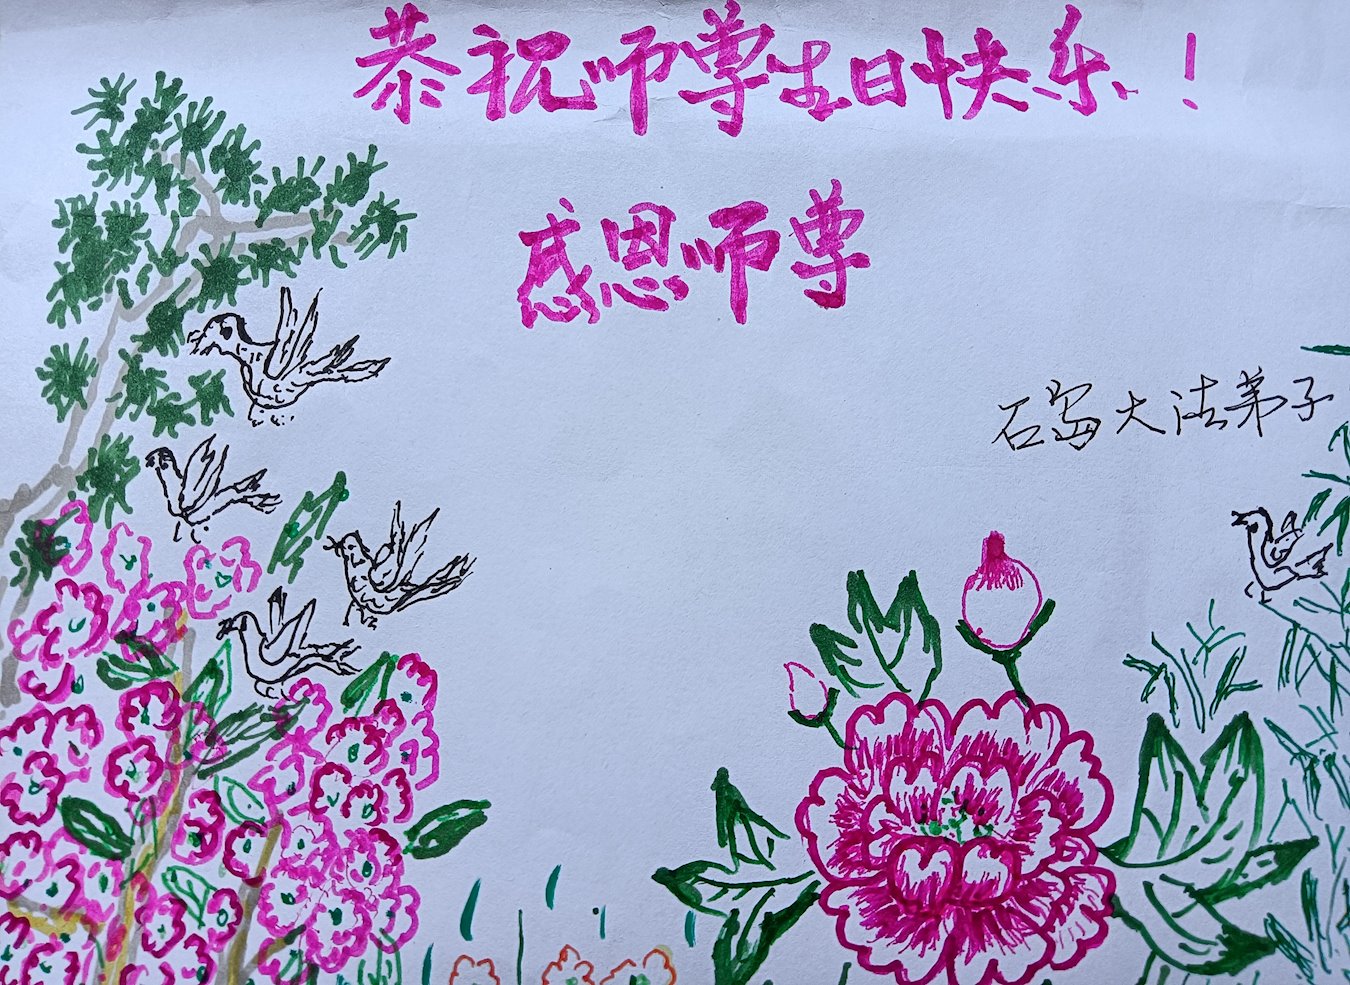 恭祝师尊生日快乐！
感恩师尊
石岛大法弟子